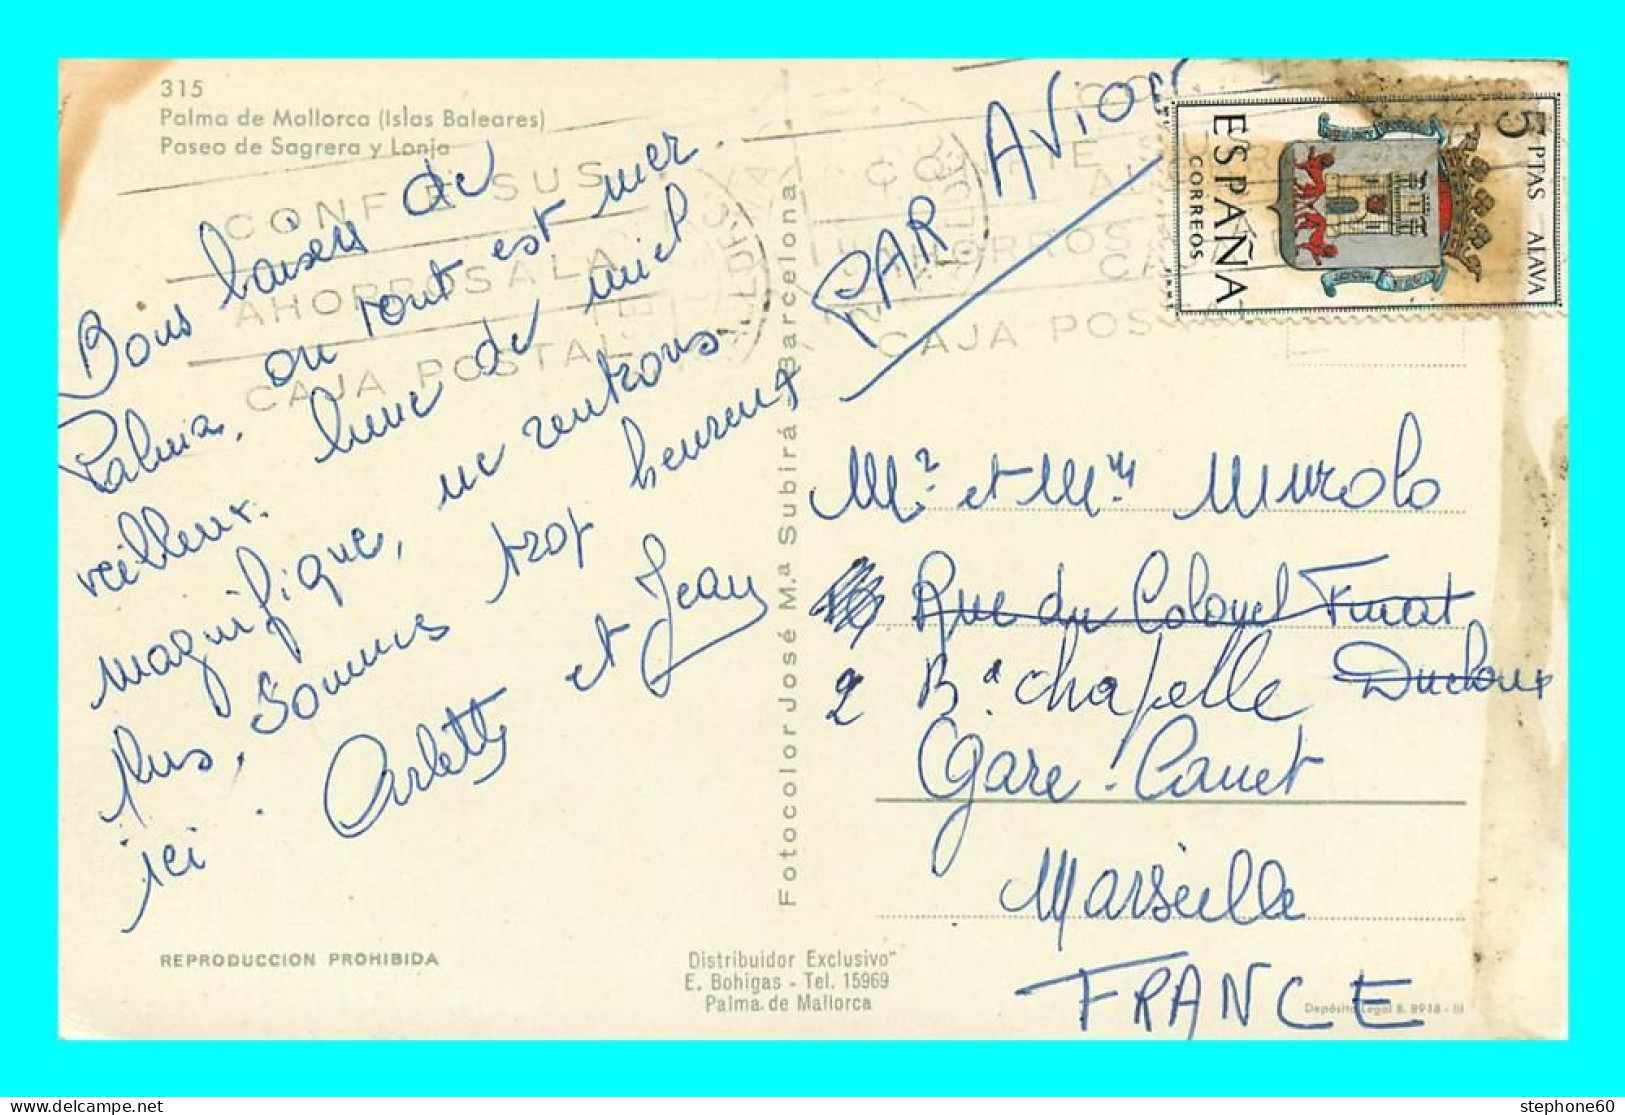 315
Palma de Mallorca (Islas Baleares)
Paseo de Sagrera y Lonja
CONFIE SUS
AHORROS A LA
CAJA POSTAL
Bons baisers de
Palma, ou tout est mer
veilleux. Lune de miel
magnifique, ne rentrons
plus, sommes trop heureux
ici. Arlette et Jean
REPRODUCCION PROHIBIDA
Fotocolor José M.ª Subirá - Barcelona
Distribuidor Exclusivo
E. Bohigas - Tel. 15969
Palma de Mallorca
PAR AVION
CAJA POS
5 PTAS ALAVA
ESPAÑA
CORREOS
Mr et Mme Murolo
Rue du Colonel
2 Bd chapelle
Gare-Canet
Marseille
FRANCE
Depósito Legal B. 8918 - III
stephone60